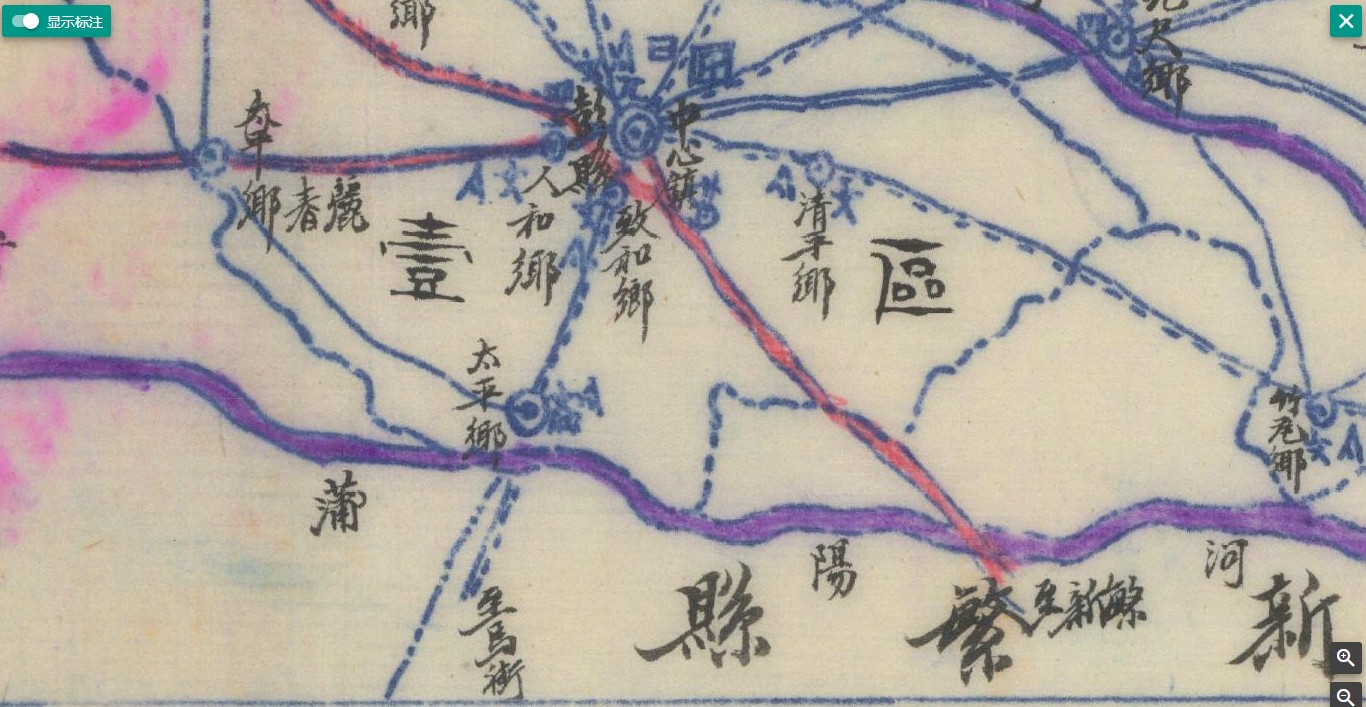 显示标注
鄉
尺鄉
太平鄉
麗春
彭縣
中心鎮
人和鄉
致和鄉
清平鄉
壹
區
太平鄉
竹瓦鄉
蒲
陽
河
至馬街
縣
繁
新
至新繁